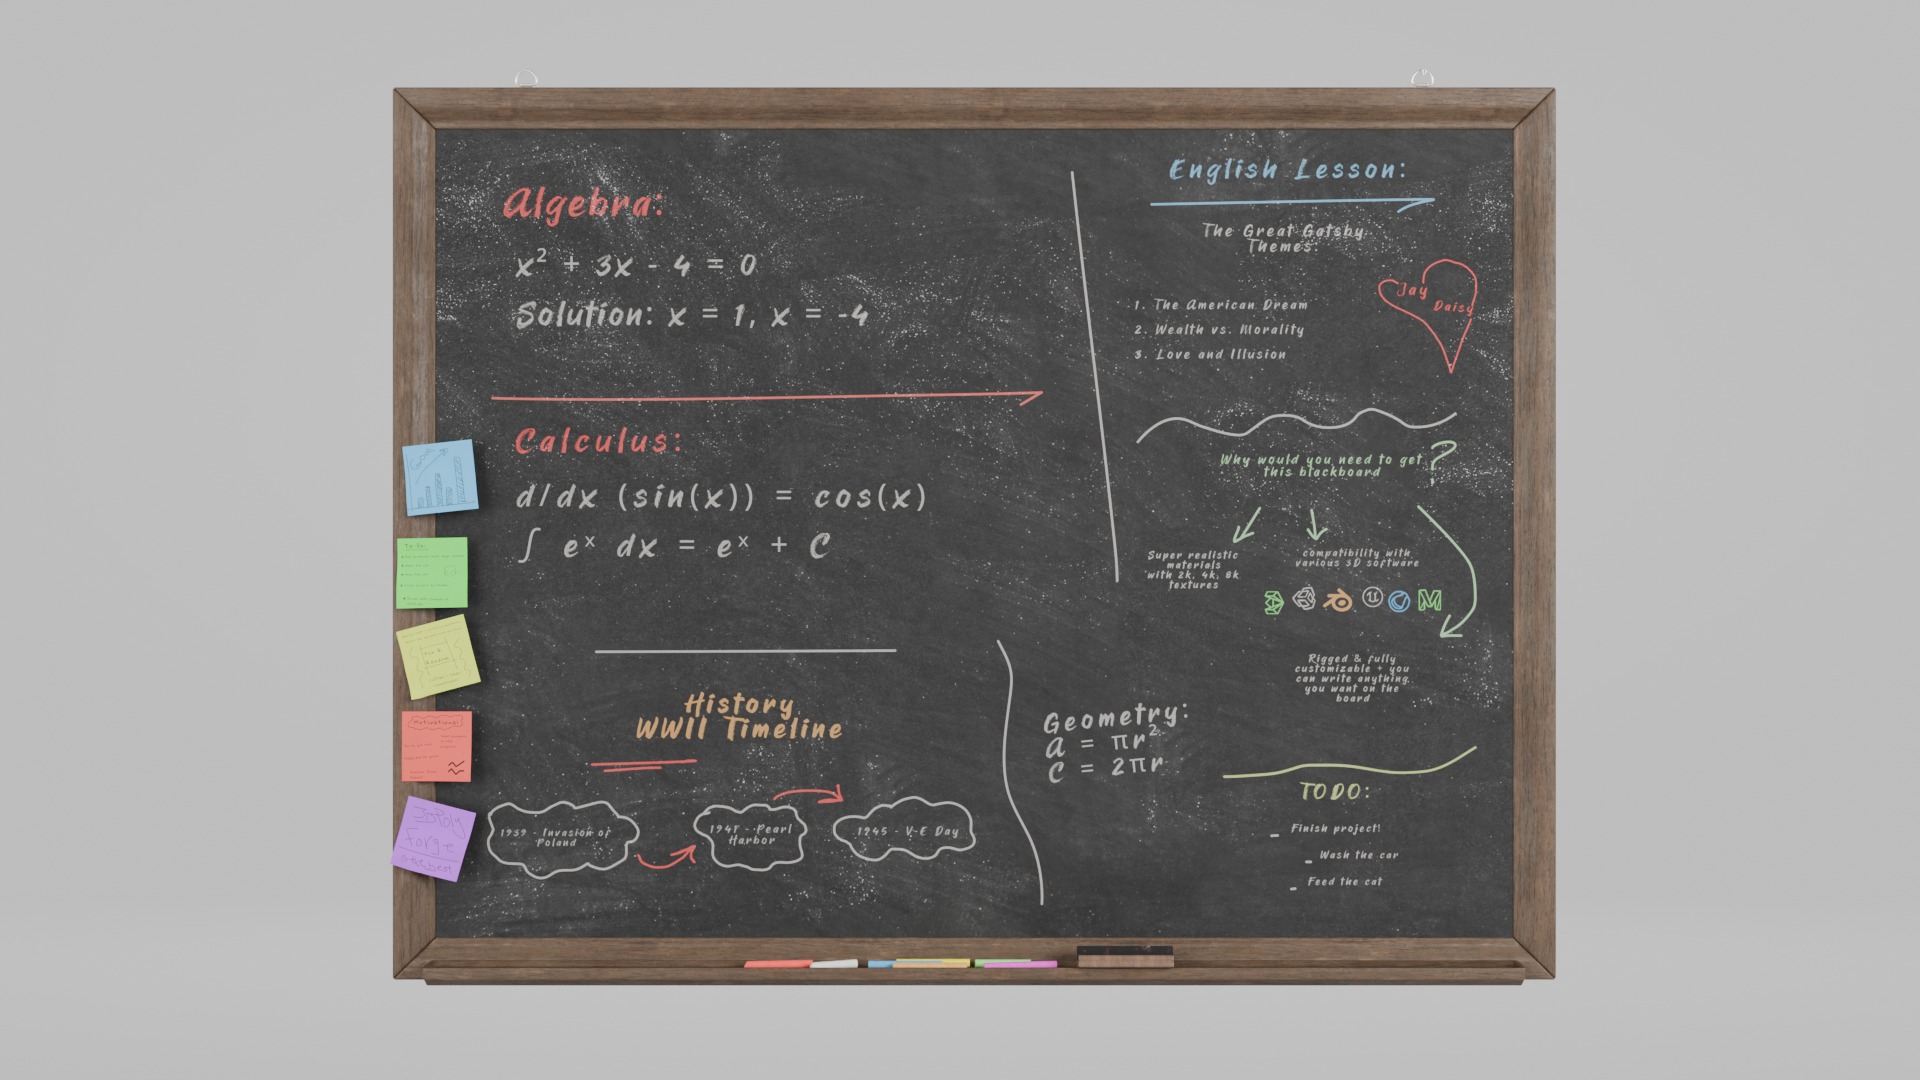 Algebra:
x² + 3x - 4 = 0
Solution: x = 1, x = -4
Calculus:
d/dx (sin(x)) = cos(x)
∫ eˣ dx = eˣ + C
History
WWII Timeline
1939 - Invasion of
Poland
1941 - Pearl
Harbor
1945 - V-E Day
Geometry:
A = πr²
C = 2πr
English Lesson:
The Great Gatsby
Themes:
1. The American Dream
2. Wealth vs. Morality
3. Love and Illusion
Jay
Daisy
Why would you need to get
this blackboard
?
Super realistic
materials
with 2k, 4k, 8k
textures
compatibility with
various 3D software
Rigged & fully
customizable + you
can write anything
you want on the
board
TODO:
- Finish project!
- Wash the car
- Feed the cat
To Do:
Motivational
3DPoly
Forge
is the best